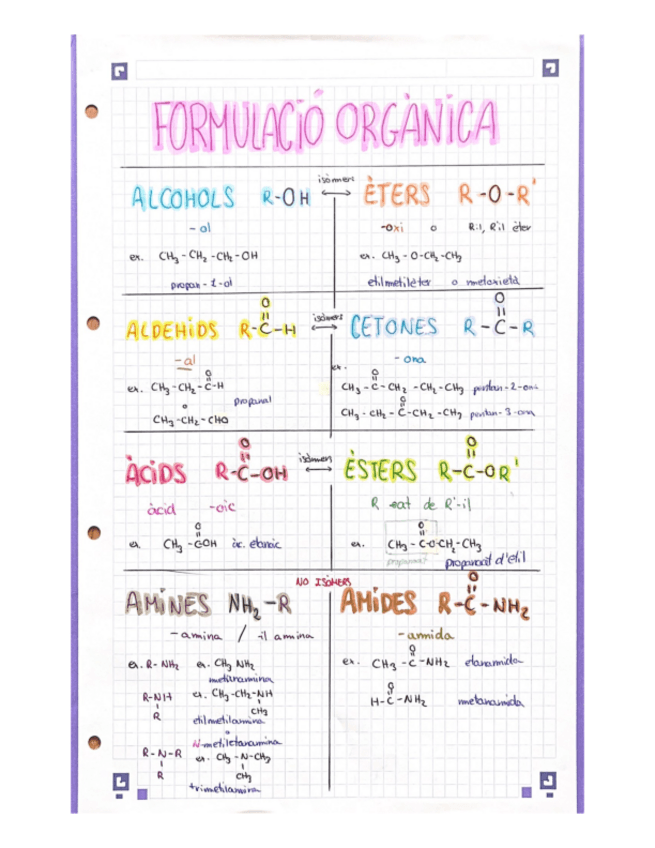 FORMULACIÓ ORGÀNICA
ALCOHOLS R-OH
isòmers
ÈTERS R-O-R'
-ol
-oxi o R·il, R'·il èter
ex. CH₃-CH₂-CH₂-OH
propan-1-ol
ex. CH₃-O-CH₂-CH₃
etilmetilèter o metoxietà
ALDEHIDS R-C-H
O
isòmers
CETONES R-C-R
O
-al
-ona
ex. CH₃-CH₂-C-H
O
propanal
o
CH₃-CH₂-CHO
ex.
O
CH₃-C-CH₂-CH₂-CH₃ pentan-2-ona
O
CH₃-CH₂-C-CH₂-CH₃ pentan-3-ona
ÀCIDS R-C-OH
O
isòmers
ÈSTERS R-C-OR'
O
àcid -oic
R -oat de R'-il
ex. CH₃-COH àc. etanoic
O
ex. CH₃-C-O-CH₂-CH₃
O
propanoat d'etil
NO ISÒMERS
AMINES NH₂-R
AMIDES R-C-NH₂
O
-amina / -il amina
-amida
ex. R-NH₂ ex. CH₃NH₂
metilamina
R-NH
R
ex. CH₃-CH₂-NH
CH₃
etilmetilamina
o
N-metiletanamina
R-N-R
R
ex. CH₃-N-CH₃
CH₃
trimetilamina
ex. CH₃-C-NH₂ etanamida
O
H-C-NH₂ metanamida
O